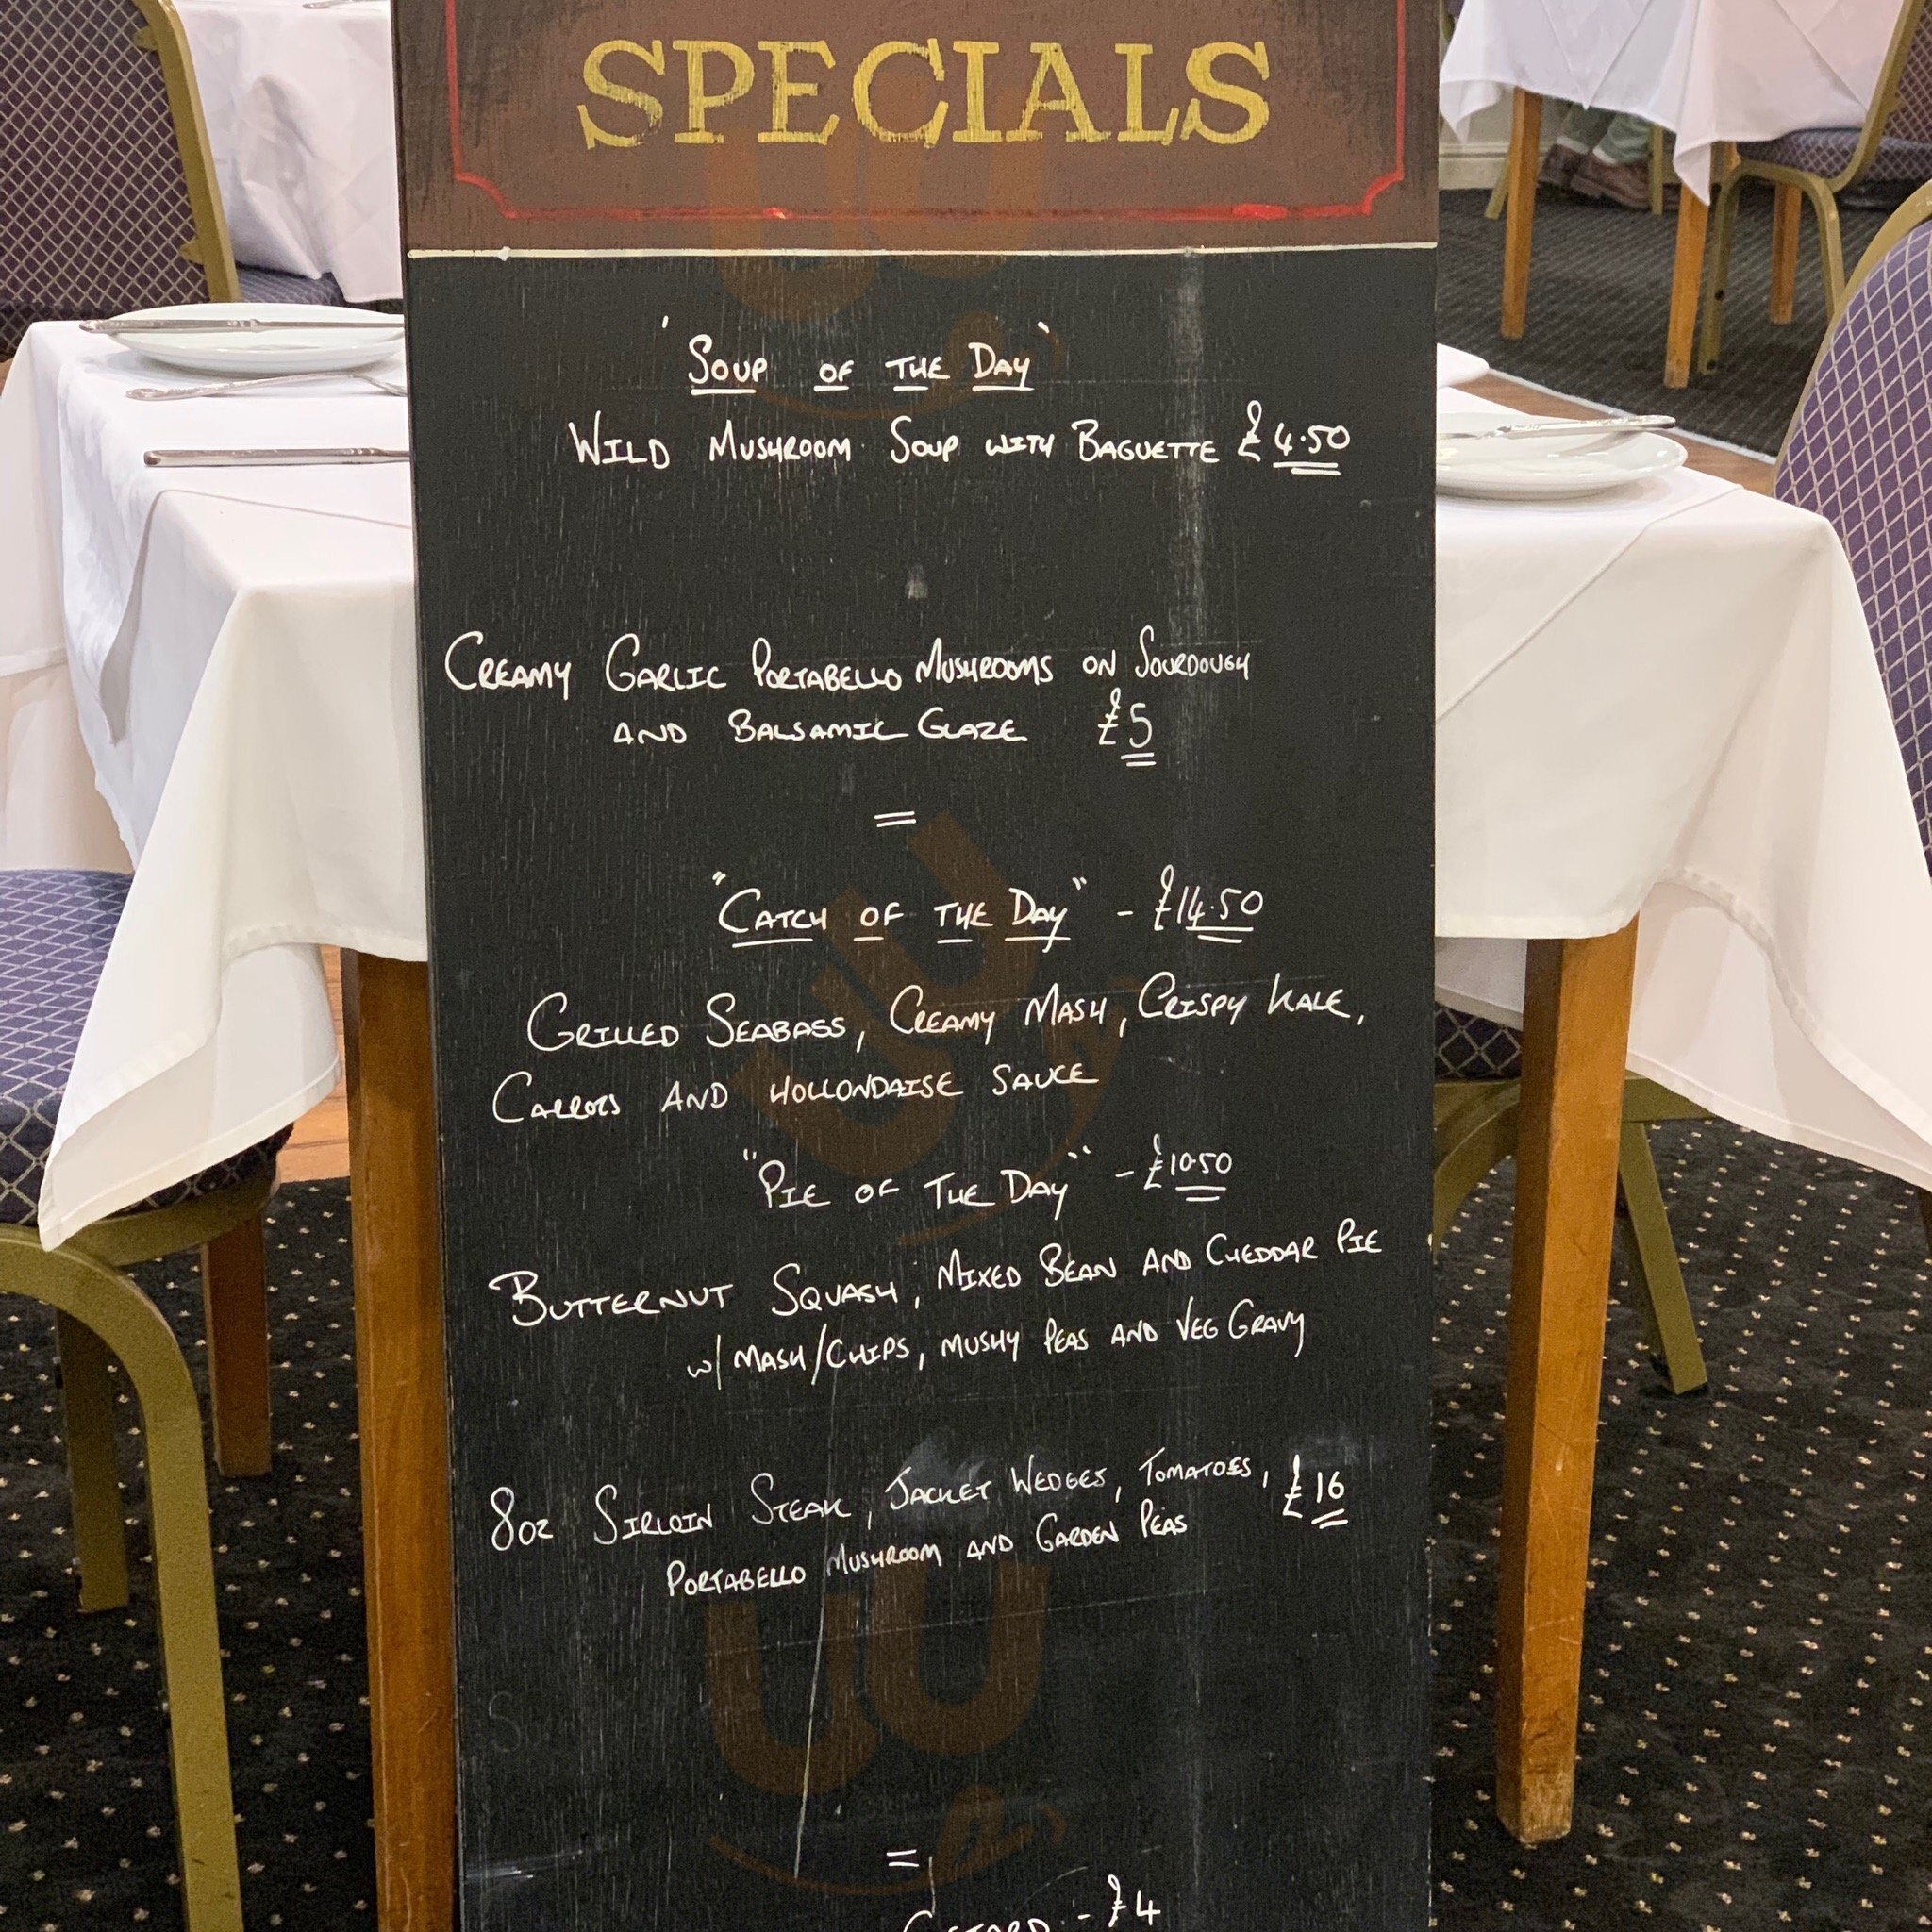 SPECIALS
'SOUP OF THE DAY'
WILD MUSHROOM SOUP WITH BAGUETTE £4.50
CREAMY GARLIC PORTABELLO MUSHROOMS ON SOURDOUGH
AND BALSAMIC GLAZE £5
=
"CATCH OF THE DAY" - £14.50
GRILLED SEABASS, CREAMY MASH, CRISPY KALE,
CARROTS AND HOLLONDAISE SAUCE
"PIE OF THE DAY" - £10.50
BUTTERNUT SQUASH, MIXED BEAN AND CHEDDAR PIE
W/ MASH/CHIPS, MUSHY PEAS AND VEG GRAVY
8OZ SIRLOIN STEAK, JACKET WEDGES, TOMATOES, £16
PORTABELLO MUSHROOM AND GARDEN PEAS
=
- £4